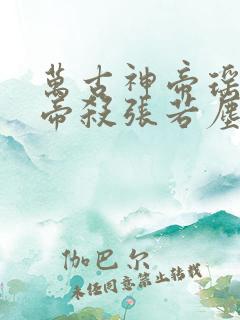 萬古神帝瑶
帝殺張若塵
伽巴尔
未经同意禁止转载